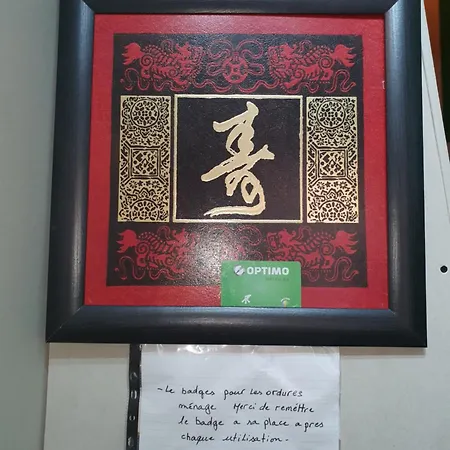 寿
OPTIMO
- Le badges pour les ordures
ménage Merci de remettre
le badge a sa place apres
chaque utilisation -